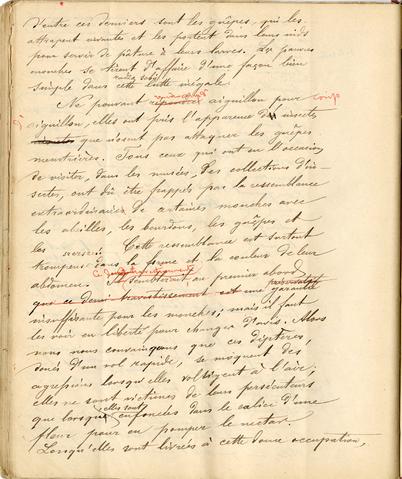 Ventre ces derniers sont les guêpes, qui les
attrapent vivantes et les portent dans leurs nids
pour servir de pâture à leurs larves. Les pauvres
mouches se tirent d'affaire d'une façon bien
simple dans cette lutte inégale.
Ne pouvant aiguillon pour
aiguillon, elles ont pris l'apparence d'insectes
que n'osent pas attaquer les guêpes
meurtrières. Tous ceux qui ont eu l'occasion
de visiter, dans les musées, des collections d'in-
sectes, ont dû être frappés par la ressemblance
extraordinaire de certaines mouches avec
les abeilles, les bourdons, les guêpes et
les Cette ressemblance est surtout
trompeuse dans la forme et la couleur de leur
abdomen. Il semblerait au premier abord
que ce demi-travestissement est une garantie
insuffisante pour les mouches; mais il faut
les voir en liberté pour changer d'avis. Alors
nous nous convainquons que ces diptères,
doués d'un vol rapide, se moquent des
agressions lorsqu'elles voltigent à l'air;
elles ne sont victimes de leurs persécuteurs
que lorsqu'elles sont enfoncées dans le calice d'une
fleur pour en pomper le nectar.
Lorsqu'elles sont livrées à cette douce occupation,